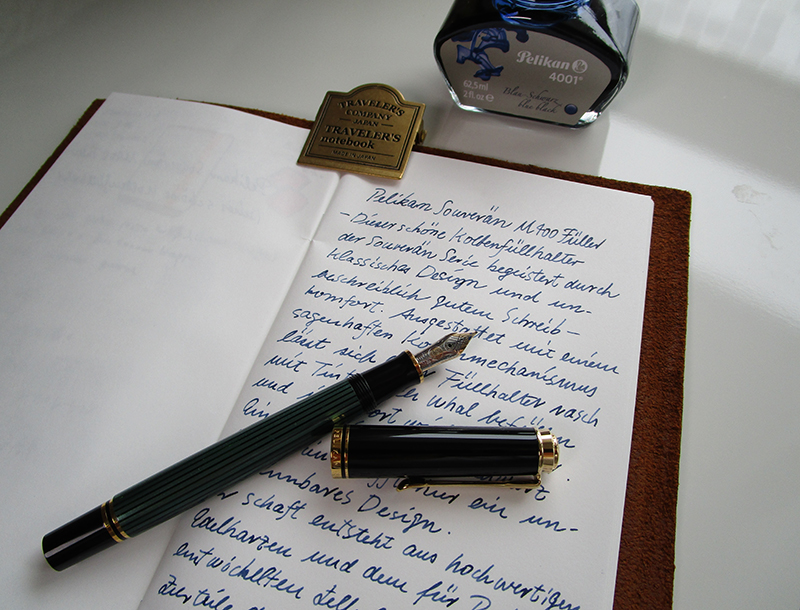 Pelikan
4001®
62.5ml
2 fl.oz e
Blau-Schwarz
blue-black
TRAVELER'S
COMPANY
JAPAN
TRAVELER'S
notebook
MADE IN JAPAN
Pelikan Souverän M400 Füller
- Dieser schöne Kolbenfüllhalter
der Souverän Serie begeistert durch
klassisches Design und un-
beschreiblich gutem Schreib-
komfort. Ausgestattet mit einem
sagenhaften mechanismus
lässt sich Füllhalter rasch
mit Whal befüllen
und
ein un-
bares Design.
schaft entsteht aus hochwertigen
Edelharzen und dem für
entwickelten
Zierteile